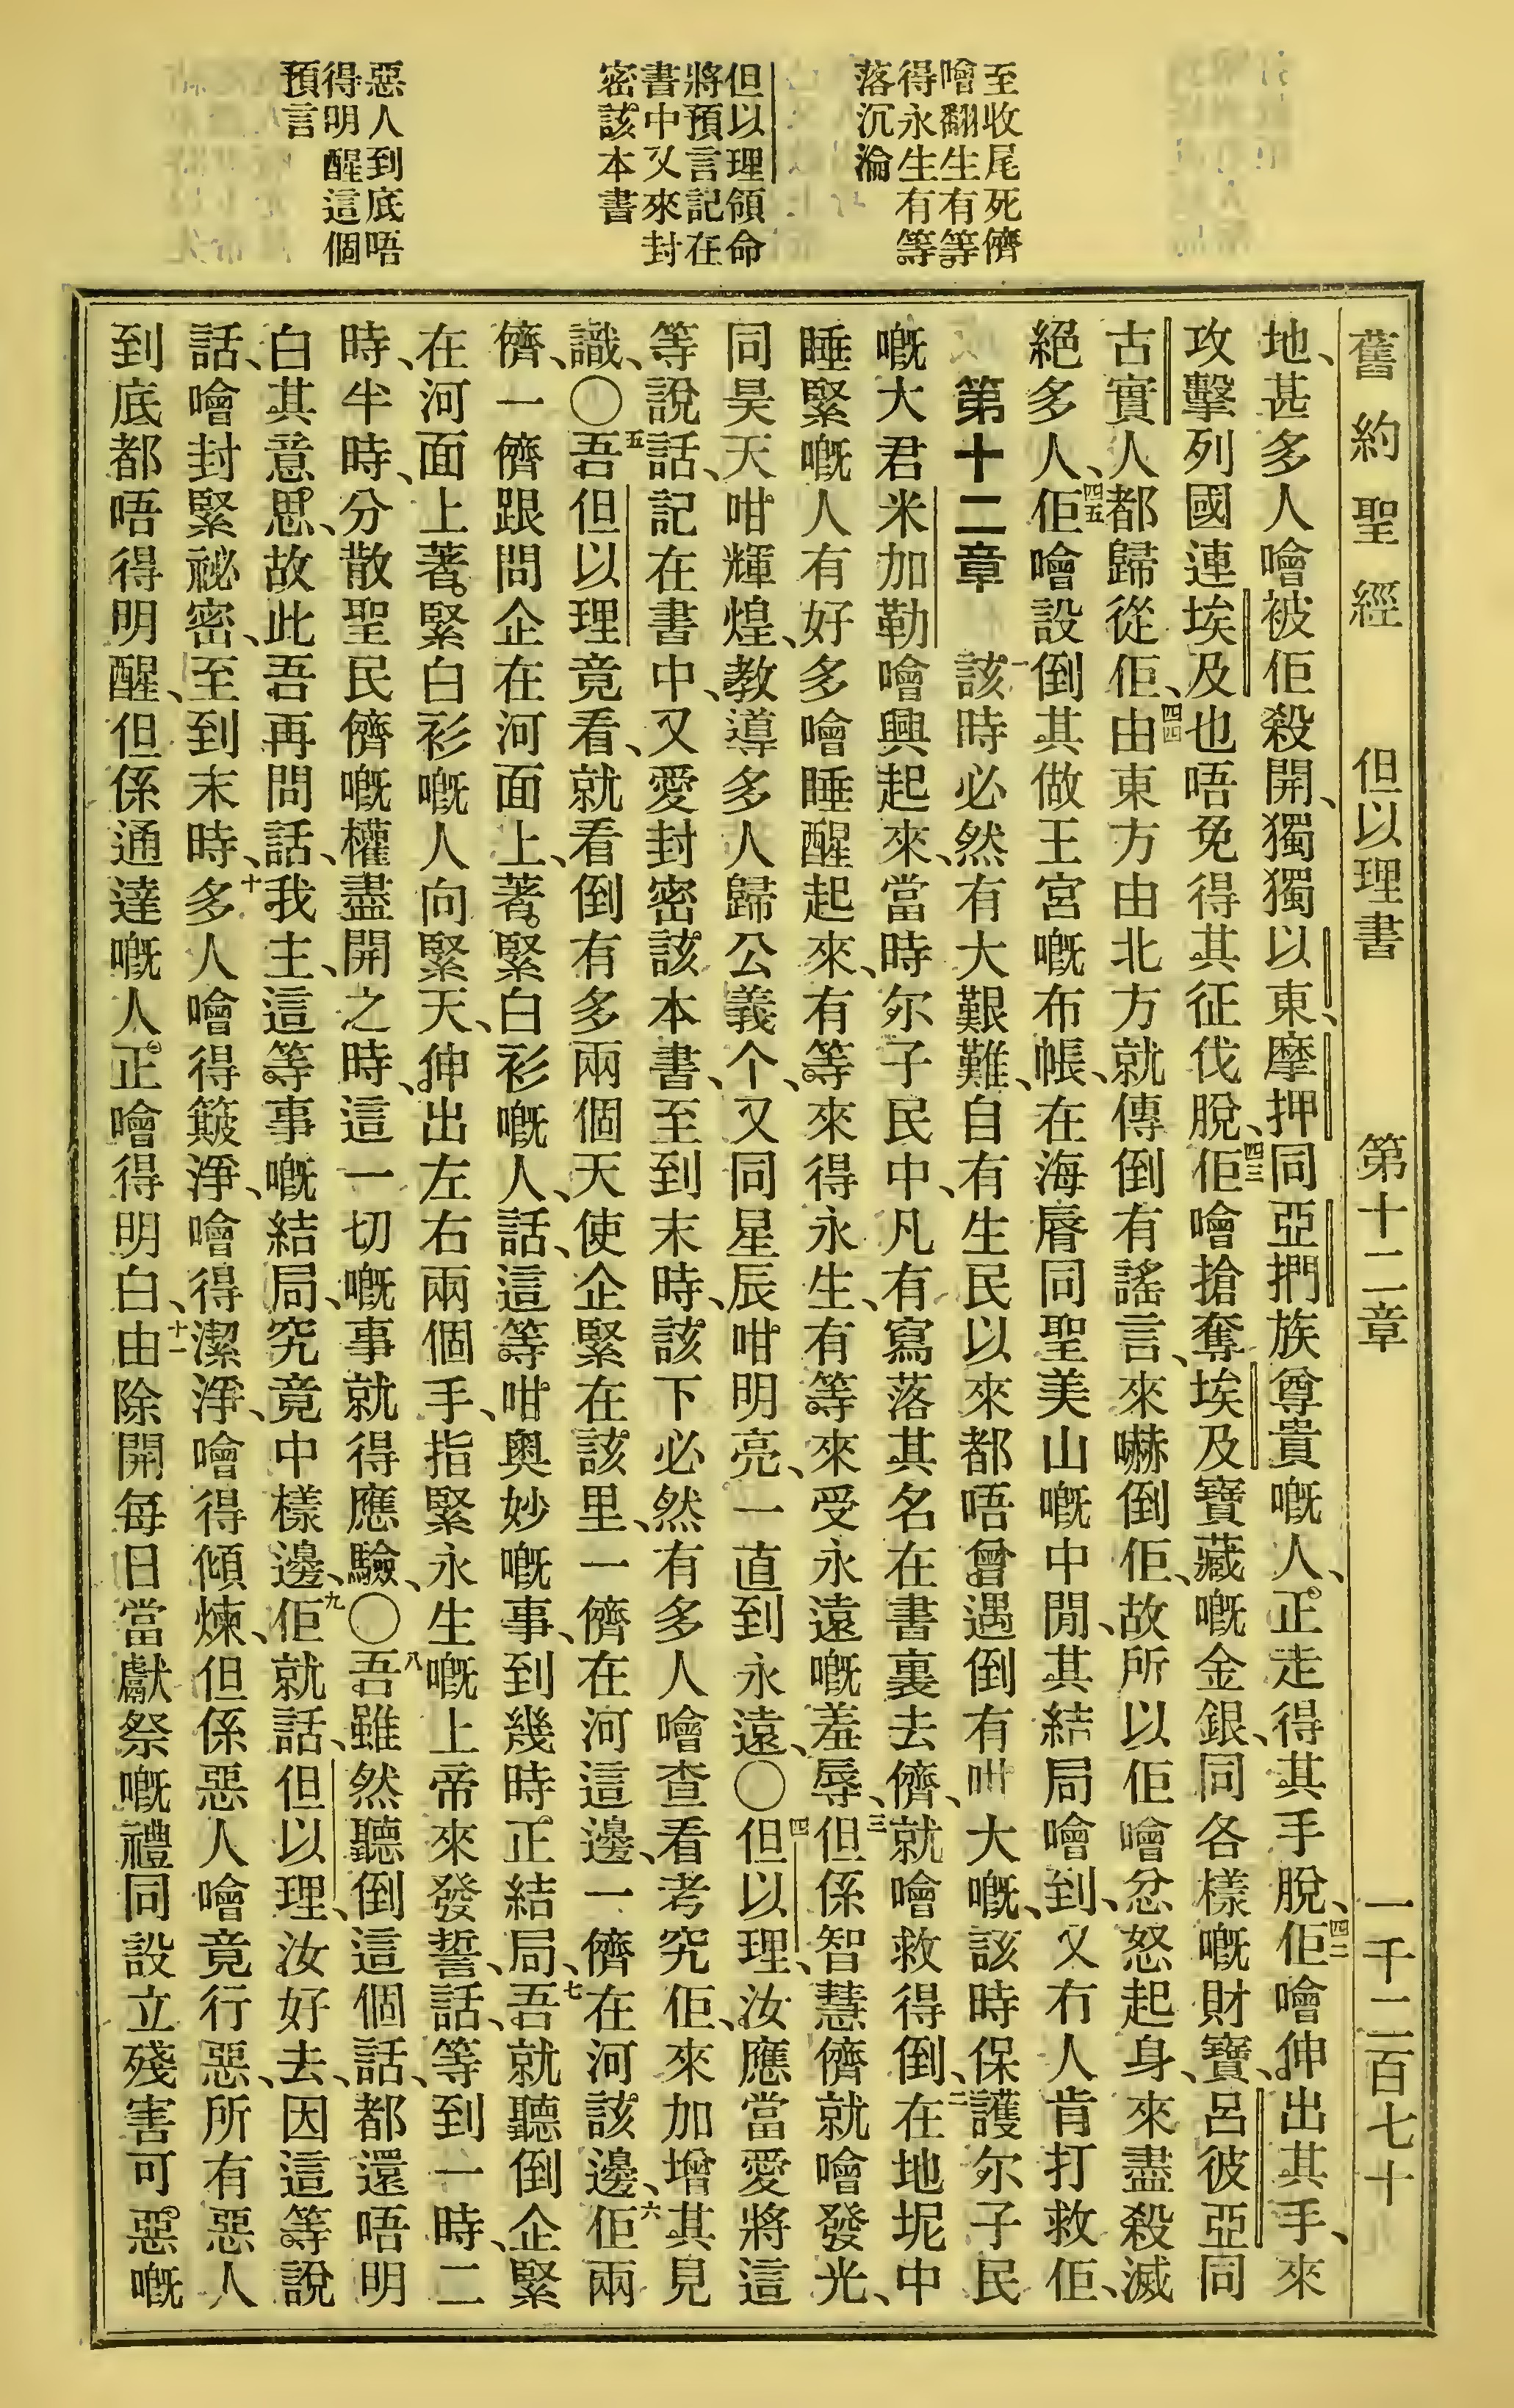 舊約聖經 但以理書 第十二章 一千二百七十
至收尾死儕
噲翻生有等
得永生有等
落沉淪
但以理領命
將預言記在
書中又來封
密該本書
惡人到底唔
得明醒這個
預言
地、甚多人噲被佢殺開、獨獨以東、摩押同亞捫族尊貴嘅人、正走得其手脫、四二佢噲伸出其手、來
攻擊列國連埃及也唔免得其征伐脫、四三佢噲搶奪埃及寶藏嘅金銀、同各樣嘅財寶、呂彼亞同
古實人都歸從佢、四四由東方由北方就傳倒有謠言、來嚇倒佢、故所以佢噲忿怒起身、來盡殺滅
絕多人、四五佢噲設倒其做王宮嘅布帳、在海脣同聖美山嘅中間、其結局噲到、又冇人肯打救佢、
第十二章 一該時必然有大艱難、自有生民以來都唔曾遇倒有咁大嘅、該時保護尔子民
嘅大君米加勒噲興起來、當時尔子民中、凡有寫落其名在書裏去儕、就噲救得倒、二在地坭中
睡緊嘅人有好多噲睡醒起來、有等來得永生、有等來受永遠嘅羞辱、三但係智慧儕就噲發光、
同昊天咁輝煌、教導多人歸公義个、又同星辰咁明亮、一直到永遠、〇四但以理、汝應當愛將這
等說話、記在書中、又愛封密該本書、至到末時、該下必然有多人噲查看考究佢、來加增其見
識、〇五吾但以理竟看、就看倒有多兩個天使企緊在該里、一儕在河這邊、一儕在河該邊、六佢兩
儕、一儕跟問企在河面上、著緊白衫嘅人、話、這等咁奧妙嘅事、到幾時正結局、七吾就聽倒企緊
在河面上著緊白衫嘅人向緊天、伸出左右兩個手、指緊永生嘅上帝來發誓、話、等到一時、二
時、半時、分散聖民儕嘅權盡開之時、這一切嘅事就得應驗、〇八吾雖然聽倒這個話、都還唔明
白其意思、故此吾再問話、我主、這等事嘅結局、究竟中樣邊、九佢就話、但以理、汝好去、因這等說
話、噲封緊祕密、至到末時、十多人噲得簸淨、噲得潔淨、噲得傾煉、但係惡人噲竟行惡、所有惡人
到底都唔得明醒、但係通達嘅人、正噲得明白、十一由除開每日當獻祭嘅禮同設立殘害可惡嘅